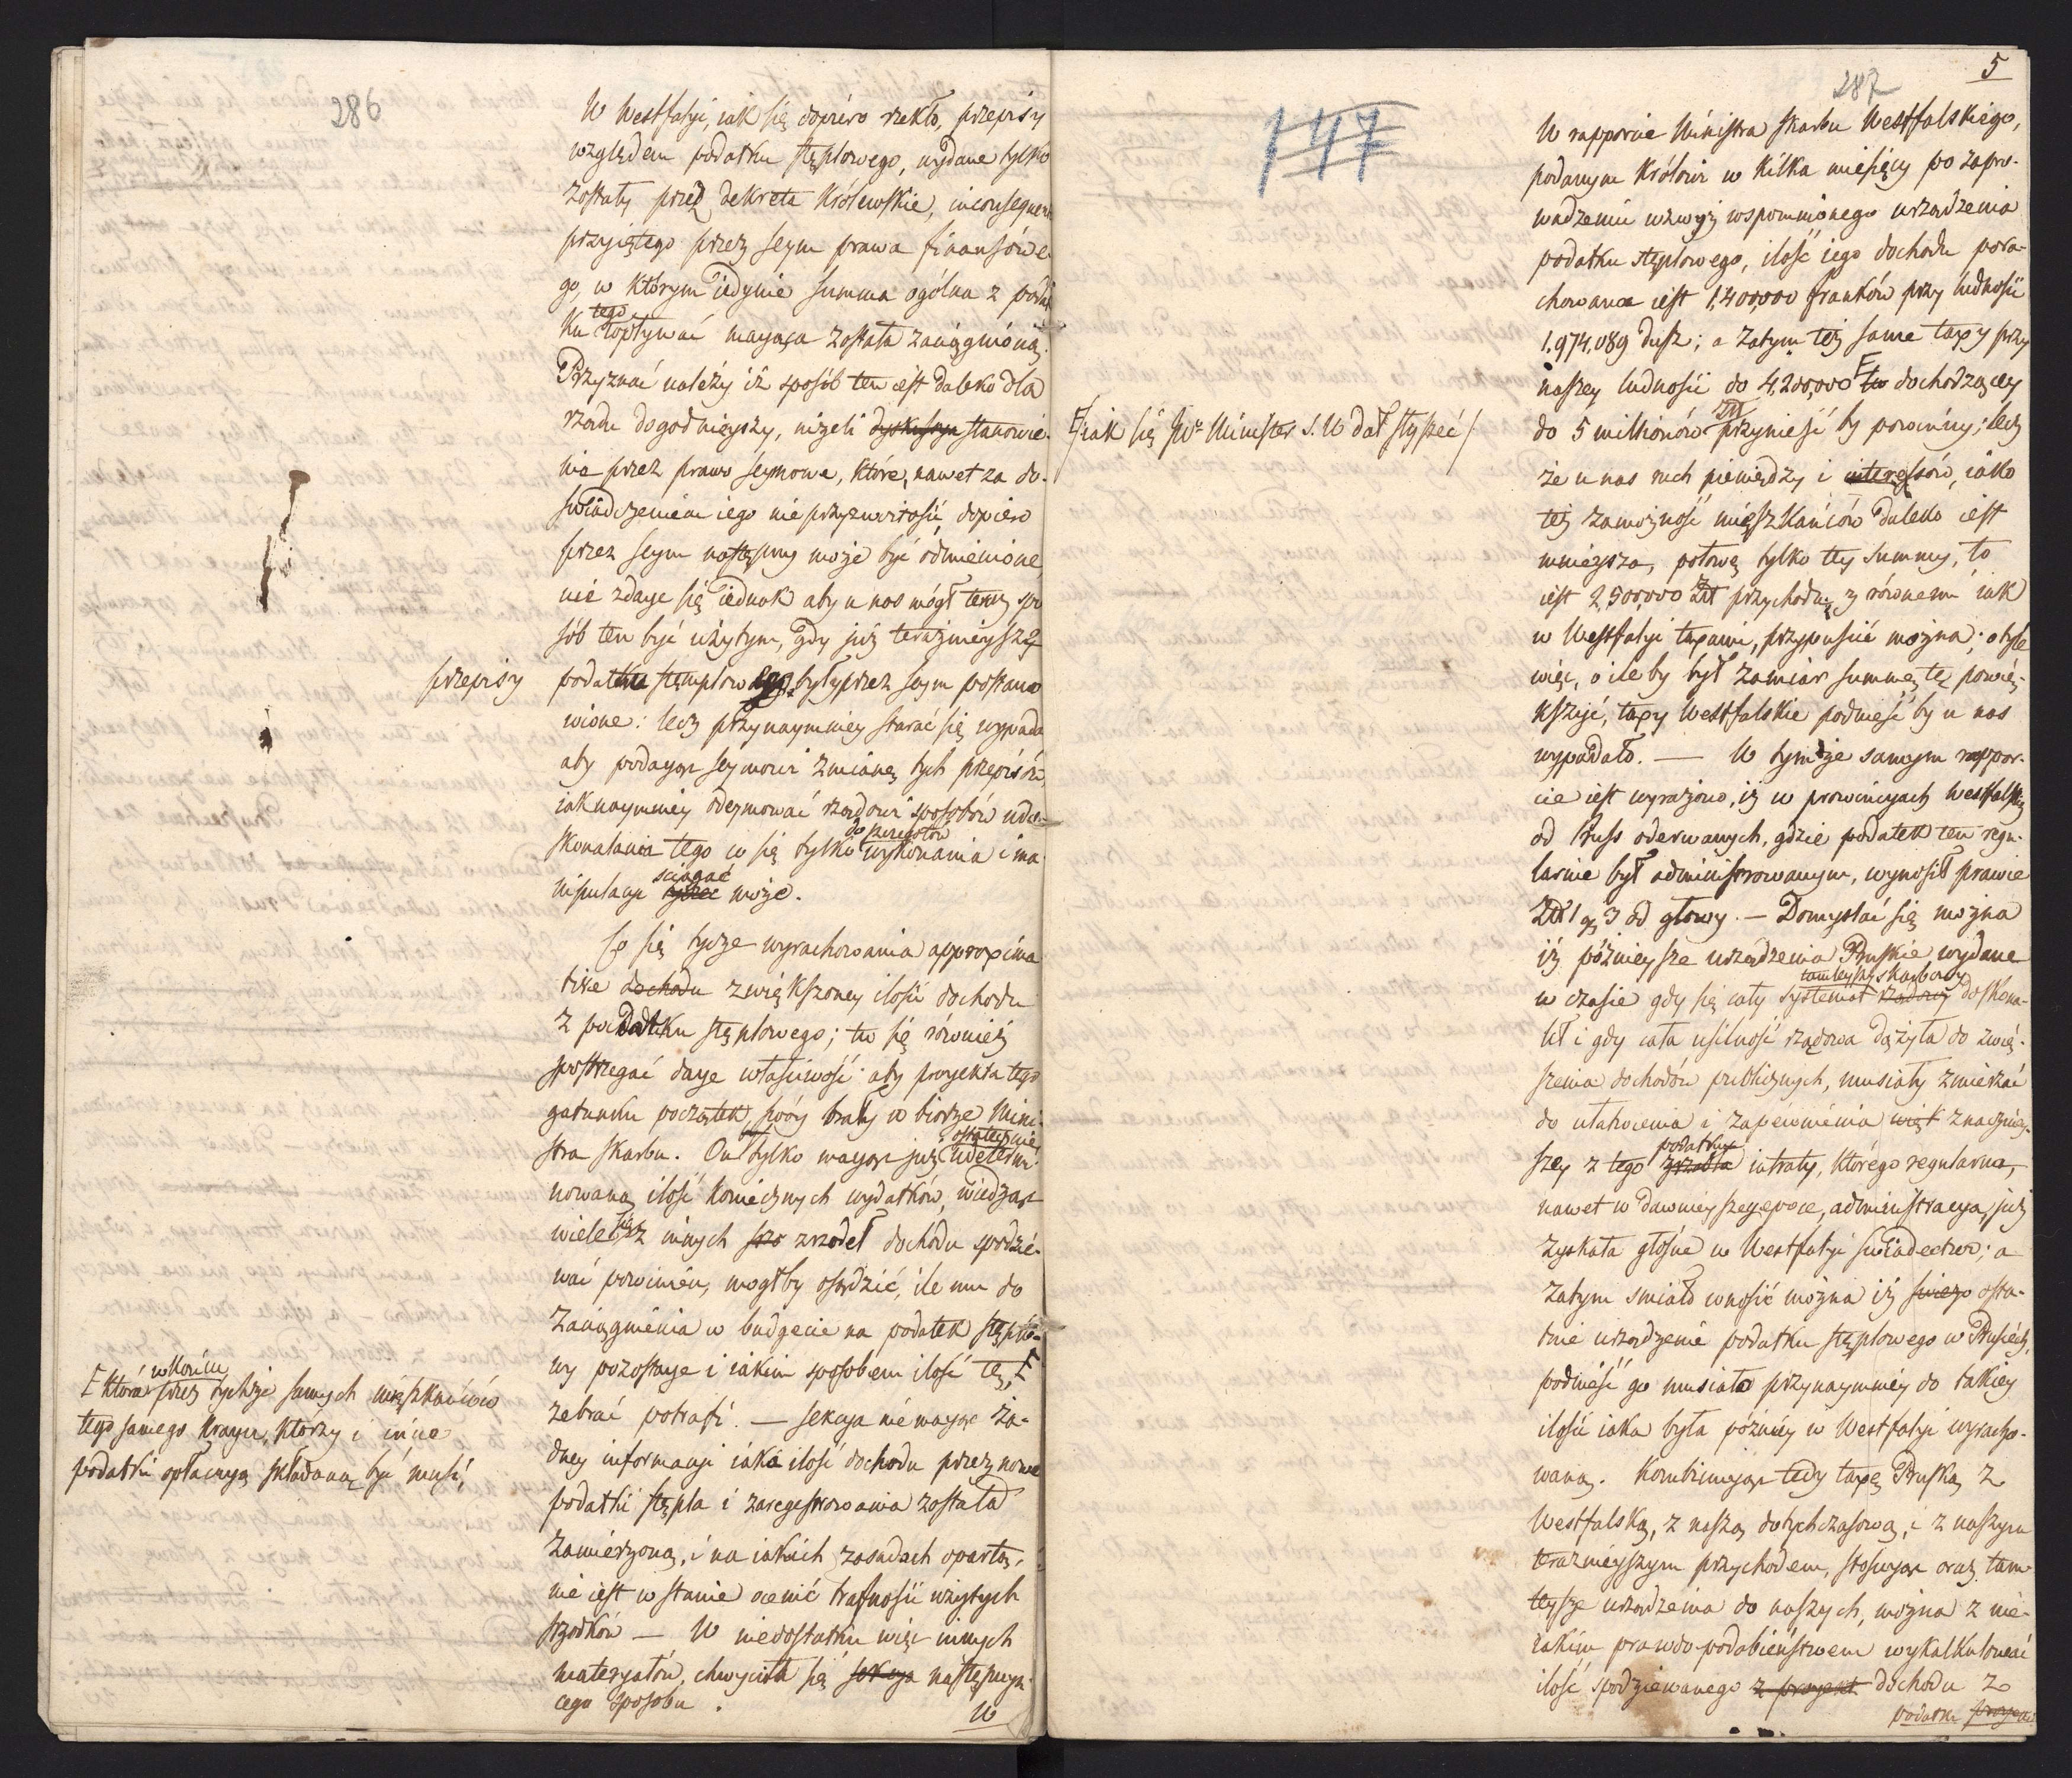 286
W Westfalyi, iak się dopiéro rzekło, przepisy
względem podatku stęplowego, wydane tylko
zostały przez dekreta Królewskie, inconsequen
przyiętego przez seym prawa finansowe-
go, w którym iedynie summa ogólna z podat
ku tego wpływać maiąca została zaciągnioną.
Przyznać należy iż sposób ten iest daleko dla
rządu dogodnieyszy, niżeli stanowie-
nia przez prawo seymowe, które, nawet za do-
świadczeniem iego nieprzyzwoitości, dopiero
przez seym następny może być odmienione,
nie zdaie się iednak aby u nas mógł teraz spo
sób ten być użytym, gdy już teraźnieysze
przepisy
podatku stęmplowego były przez seym postano
wione: lecz przynaymniey starać się wypada
aby podaiąc seymowi zmianę tych przepisów,
iak naymniey odeymować rządowi sposobów udo-
skonalania tego co się tylko do szczegołów wykonania i ma-
nipulacyi ściągać może.
Co się tycze wyrachowania approxima
tive dochodu zwiększoney ilości dochodu
z podatku stęplowego; tu się również
spostrzegać daie właściwość aby proiekta tego
gatunku początek swóy brały w biórze Mini-
stra Skarbu. On tylko maiąc już ostatecznie udetermi-
nowaną ilość koniecznych wydatków, wiedząc
wiele się z innych zrzódeł dochodu spodzié-
wać powinien, mógłby osądzić, ile mu do
zaciągnienia w budgecie na podatek stęplo-
wy pozostaie i iakim sposobem ilość tę,
zebrać potrafi. — Sekcya nie maiąc ża-
dney informacyi iaka ilość dochodu przez nowe
podatki stępla i zaregestrowania została
zamierzoną, i na iakich zasadach opartą,
nie iest w stanie ocenić trafności użytych
środków — W niedostatku więc innych
materyałów, chwyciła się sekcya następuią-
cego sposobu.
W
która w końcu przez tychże samych mięszkańców
tego samego kraiu, którzy i inne
podatki opłacaią składaną być musi,
5
287
147
W rapporcie Ministra Skarbu Westfalskiego,
podanym Królowi w kilka miesięcy po zapro-
wadzeniu wzwyż wspomnionego urządzenia
podatku stęplowego, ilość iego dochodu pora-
chowana iest 1,400,000 franków przy ludności
1,974,089 dusz; a zatym też same taxy przy
naszey ludności do 4,200,000 dochodzącey
/iak się JWr Minister S. W dał słyszeć/
do 5 millionów Złt przynieść by powinny; lecz
że u nas ruch pieniędzy i interessów, iako
też zamożność mięszkańców daleko iest
mnieysza, połowę tylko tey summy, to
iest 2,500,000 Złt przychodu, z równemi iak
w Westfalyi taxami, przypuścić można; o tyle
więc, o ile by był zamiar summę tę powię-
kszyć, taxy Westfalskie podnieść by u nas
wypadało. — W tymże samym rappor-
cie iest wyrażono, iż w prowincyach Westfalsk
od Pruss oderwanych, gdzie podatek ten regu-
larnie był administrowanym, wynosił prawie
Złt 1 gr 3 od głowy. — Domyślać się można
iż późnieysze urządzenia Pruskie wydane
w czasie gdy się cały tamteyszy systemat rządowy skarbowy doskona-
lił i gdy cała usilność rządowa dążyła do zwię-
szenia dochodów publicznych, musiały zmierzać
do ułatwienia i zapewnienia więk znacznie-
szey z tego zrzódła podatku intraty, którego regularna,
nawet w dawnieyszey epoce, administracya, już
zyskała głośne w Westfalyi świadectwo; a
zatym śmiało wnosić można iż świeżo osta-
tnie urządzenie podatku stęplowego w Prusiech,
podnieść go musiało przynaymniey do takiey
ilości iaka była późniéy w Westfalyi wyracho-
waną. Kombinuiąc tedy taxę Pruską z
Westfalską, z naszą dotychczasową, i z naszym
teraznieyszym przychodem, stosuiąc oraz tam-
teysze urządzenia do naszych, można z nie-
iakim prawdopodobieństwem wykalkulować
ilość spodziewanego z proyekt dochodu z
podatku proyek